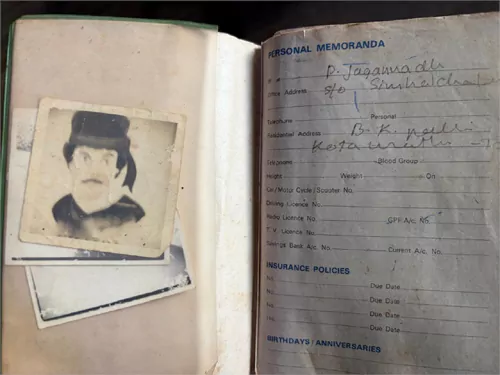 PERSONAL MEMORANDA
D. Jagannadh
Office Address s/o
Telephone Personal
Residential Address B. K.
Telephone Blood Group
Height Weight On
Car/Motor Cycle/Scooter No.
Driving Licence No.
Radio Licence No. GPF A/c No.
T.V. Licence No.
Savings Bank A/c. No. Current A/c. No.
INSURANCE POLICIES
No. Due Date
No. Due Date
No. Due Date
No. Due Date
BIRTHDAYS / ANNIVERSARIES